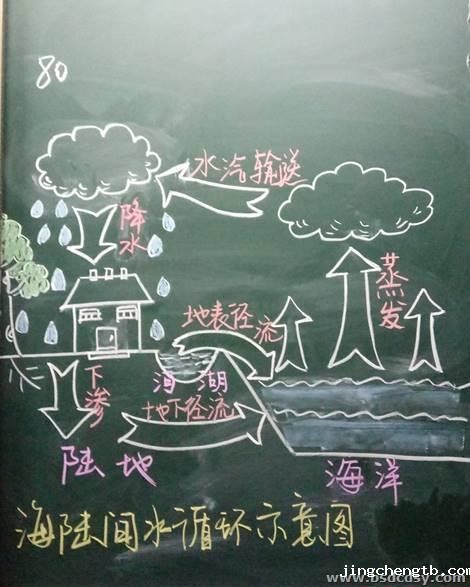 80
水汽输送
降水
蒸发
地表径流
下渗
湖
地下径流
陆地
海洋
海陆间水循环示意图
jingchengtb.com